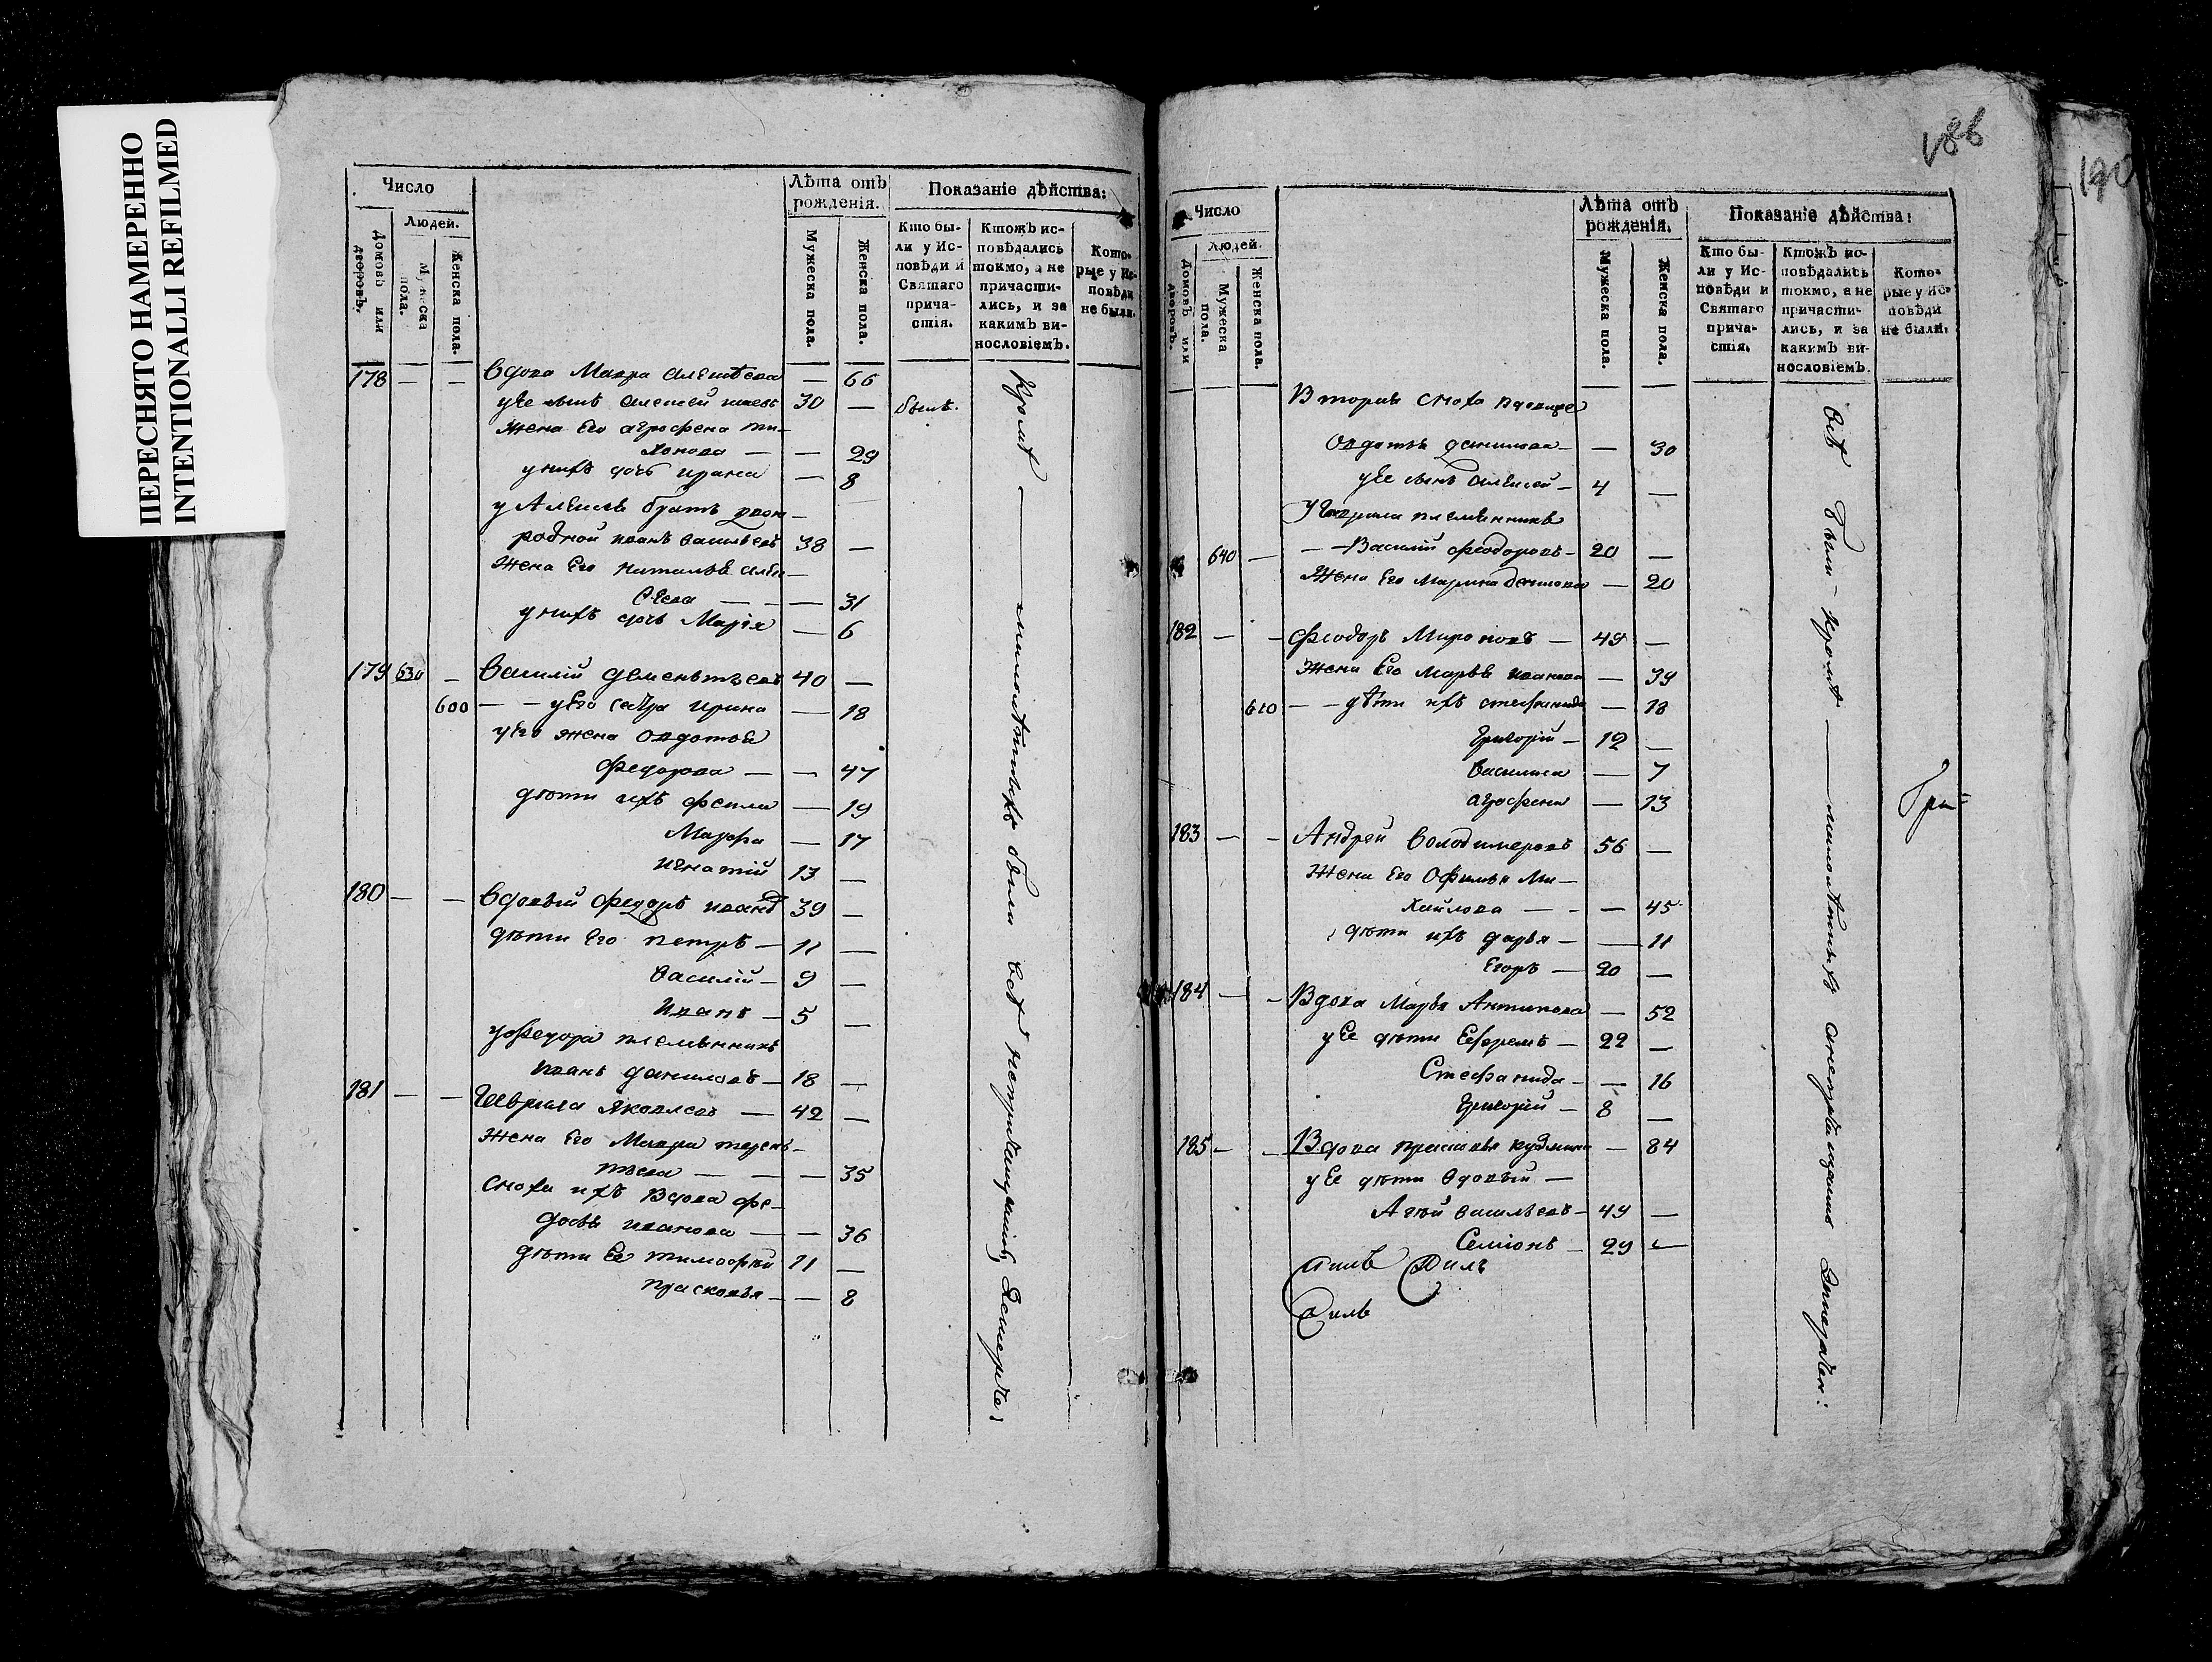 ПЕРЕСНЯТО НАМЕРЕННО
INTENTIONALLI REFILMED
Число
Людей.
Домовъ или дворовъ.
Мужеска пола.
Женска пола.
Лѣта отъ рожденія.
Мужеска пола.
Женска пола.
Показаніе дѣйства:
Кто бы-
ли у Ис-
повѣди и
Святаго
прича-
стія.
Ктожъ ис-
повѣдались
токмо, а не
причасти-
лись, и за
какимъ ви-
нословіемъ.
Кото-
рые у Ис-
повѣди
не были.
178 — — Вдова Мавра Алексѣева — 66
у Ее сынъ Алексей 30 — былъ.
Жена Его Агрофена ти-
хонова — — 29
у нихъ дочь Ирина — 8
у Алексѣя братъ двою-
родной Иванъ Васильевъ 38 —
Жена Его Наталья Але-
ѣева — — 31
у нихъ дочь Марія — 6
179 630 — Василій Дементьевъ 40 —
600 — — у Его сестра Ирина — 18
у Его жена Овдотья
Федорова — — 47
дѣти ихъ — 19
Марфа — 17
Игнатій 13 —
180 — — Вдовый Федоръ Ивановъ 39 —
дѣти Его Петръ — 11 —
Василій — 9 —
Иванъ — 5 —
у Федора племянникъ
Иванъ Даниловъ — 18 —
181 — — Гаврила Яковлевъ — 42 —
Жена Его Мавра терень-
тьева — — — 35
Сноха ихъ Вдова Фе-
досья Иванова — — 36
дѣти Ее Тимофѣй 11 —
Прасковья — — 8
Кромѣ — малолѣтныхъ были всѣ
186
190
Число
Людей.
Домовъ или дворовъ.
Мужеска пола.
Женска пола.
Лѣта отъ рожденія.
Мужеска пола.
Женска пола.
Показаніе дѣйства:
Кто бы-
ли у Ис-
повѣди и
Святаго
прича-
стія.
Ктожъ ис-
повѣдались
токмо, а не
причасти-
лись, и за
какимъ ви-
нословіемъ.
Кото-
рые у Ис-
повѣди
не были.
Вторая сноха
Овдотья Данилова — — 30
у Ее сынъ Алексей — 4 —
У Гаврила племянникъ
640 — — — Василій Феодоровъ — 20 —
Жена Его Марина Данилова — 20
182 — — Феодоръ Мироновъ — 49 —
Жена Его Марья Иванова — 39
610 — — дѣти ихъ Стефанида — 18
Григорій — 12 —
Василиса — 7
Агрофена — 13
183 — — Андрей Володимеровъ 56 —
Жена Его Офимья Ми-
хайлова — — — 45
дѣти ихъ Дарья — — 11
Егоръ — 20 —
184 — — Вдова Марья Антипова — 52
у Ее дѣти Ефремъ — 22 —
Стефанида — — 16
Григорій — 8 —
185 — — Вдова Прасковья Кузмина — 84
у Ее дѣти Вдовый —
Агѣй Васильевъ — 49 —
Семіонъ — 29 —
Всѣ были — Кромѣ — малолѣтныхъ